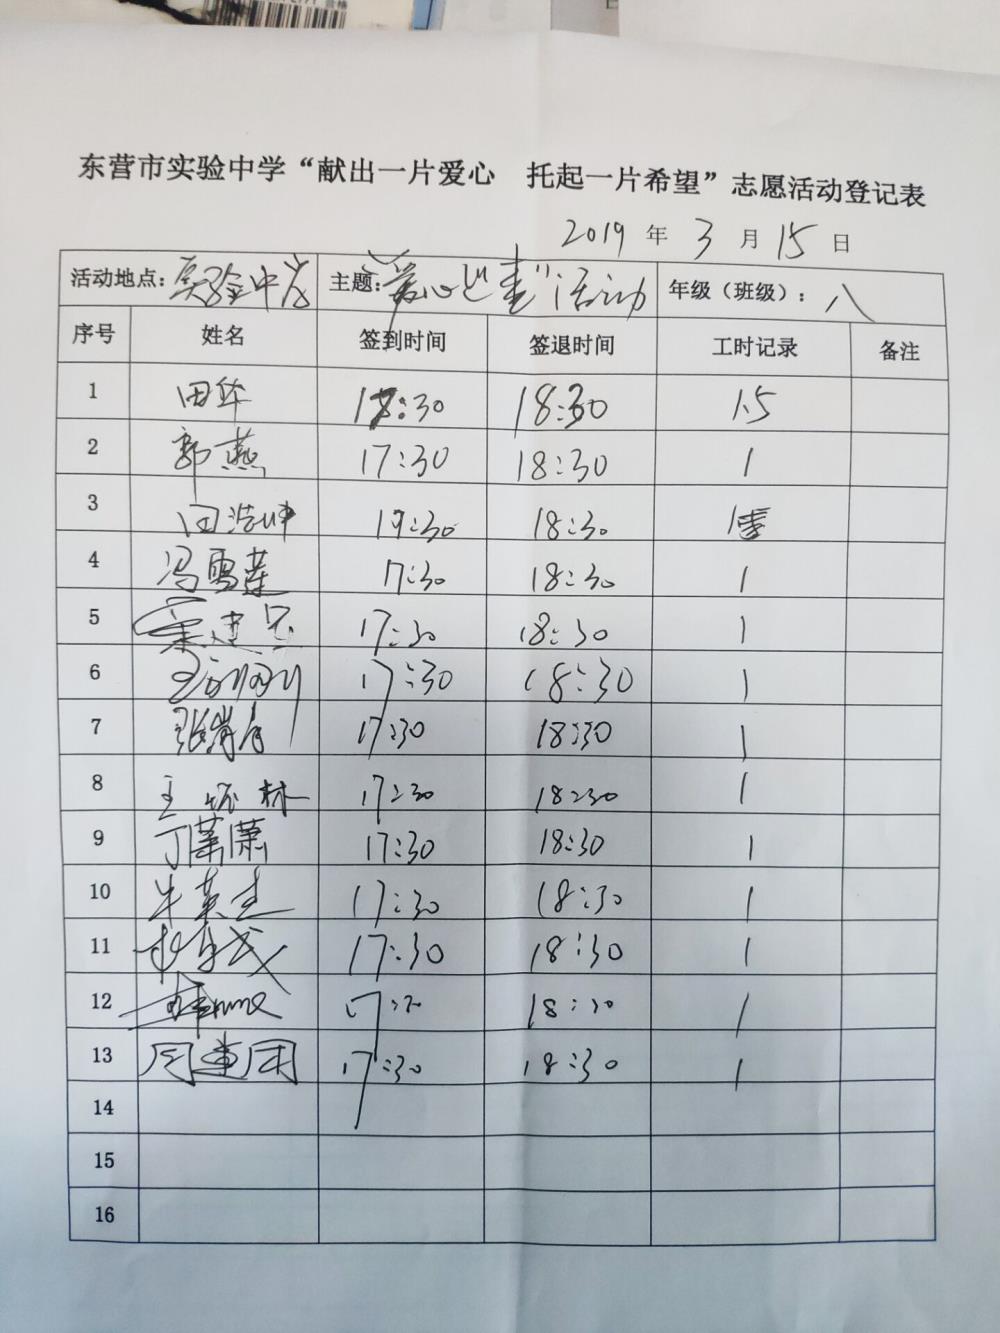 东营市实验中学“献出一片爱心 托起一片希望”志愿活动登记表
2019 年 3 月 15 日
活动地点：实验中学 主题：“爱心义卖”活动 年级（班级）：八
序号 姓名 签到时间 签退时间 工时记录 备注
1 田华 17:30 18:30 1.5
2 郭燕 17:30 18:30 1
3 田浩坤 17:30 18:30 1
4 冯雪莲 17:30 18:30 1
5 17:30 18:30 1
6 17:30 18:30 1
7 17:30 18:30 1
8 王 林 17:30 18:30 1
9 丁潇潇 17:30 18:30 1
10 牛英杰 17:30 18:30 1
11 17:30 18:30 1
12 17:30 18:30 1
13 17:30 18:30 1
14
15
16